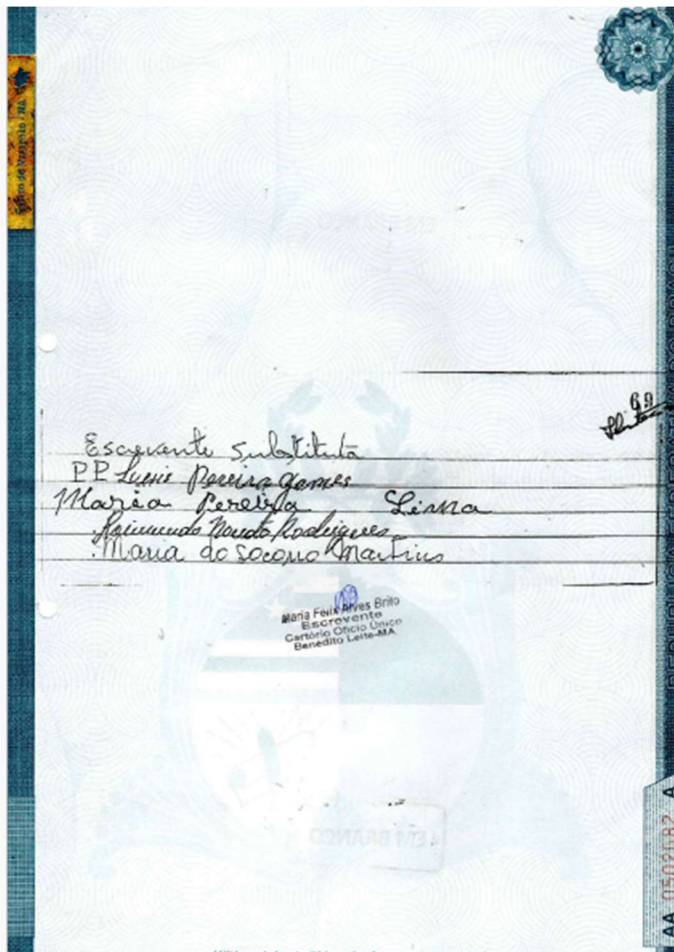 EM BRANCO
69
Escrevente Substituta
PP Luis Pereira Gomes
Maria Pereira Lima
Raimundo Nonato Rodrigues
Maria do Socorro Martins
Maria Felix Alves Brito
Escrevente
Cartório Ofício Único
Benedito Leite-MA
EM BRANCO
AA 0502682 A